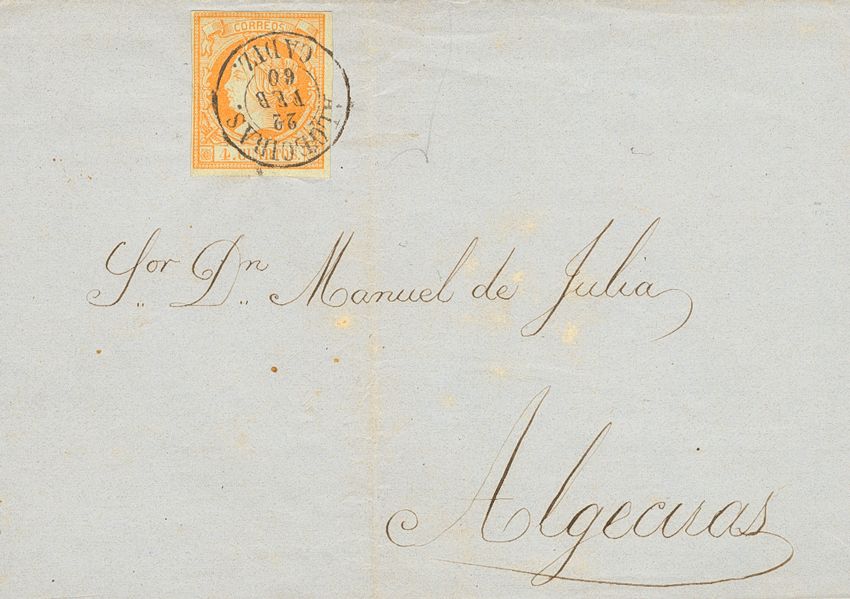 CORREOS
ALGECIRAS.
22
FEB
60
CADIZ.
Sor Dn Manuel de Julia
Algeciras